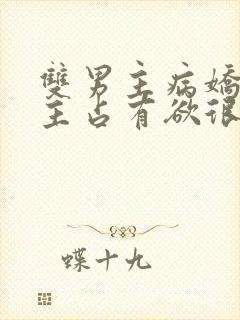 雙男主病嬌
主占有欲很
蝶十九